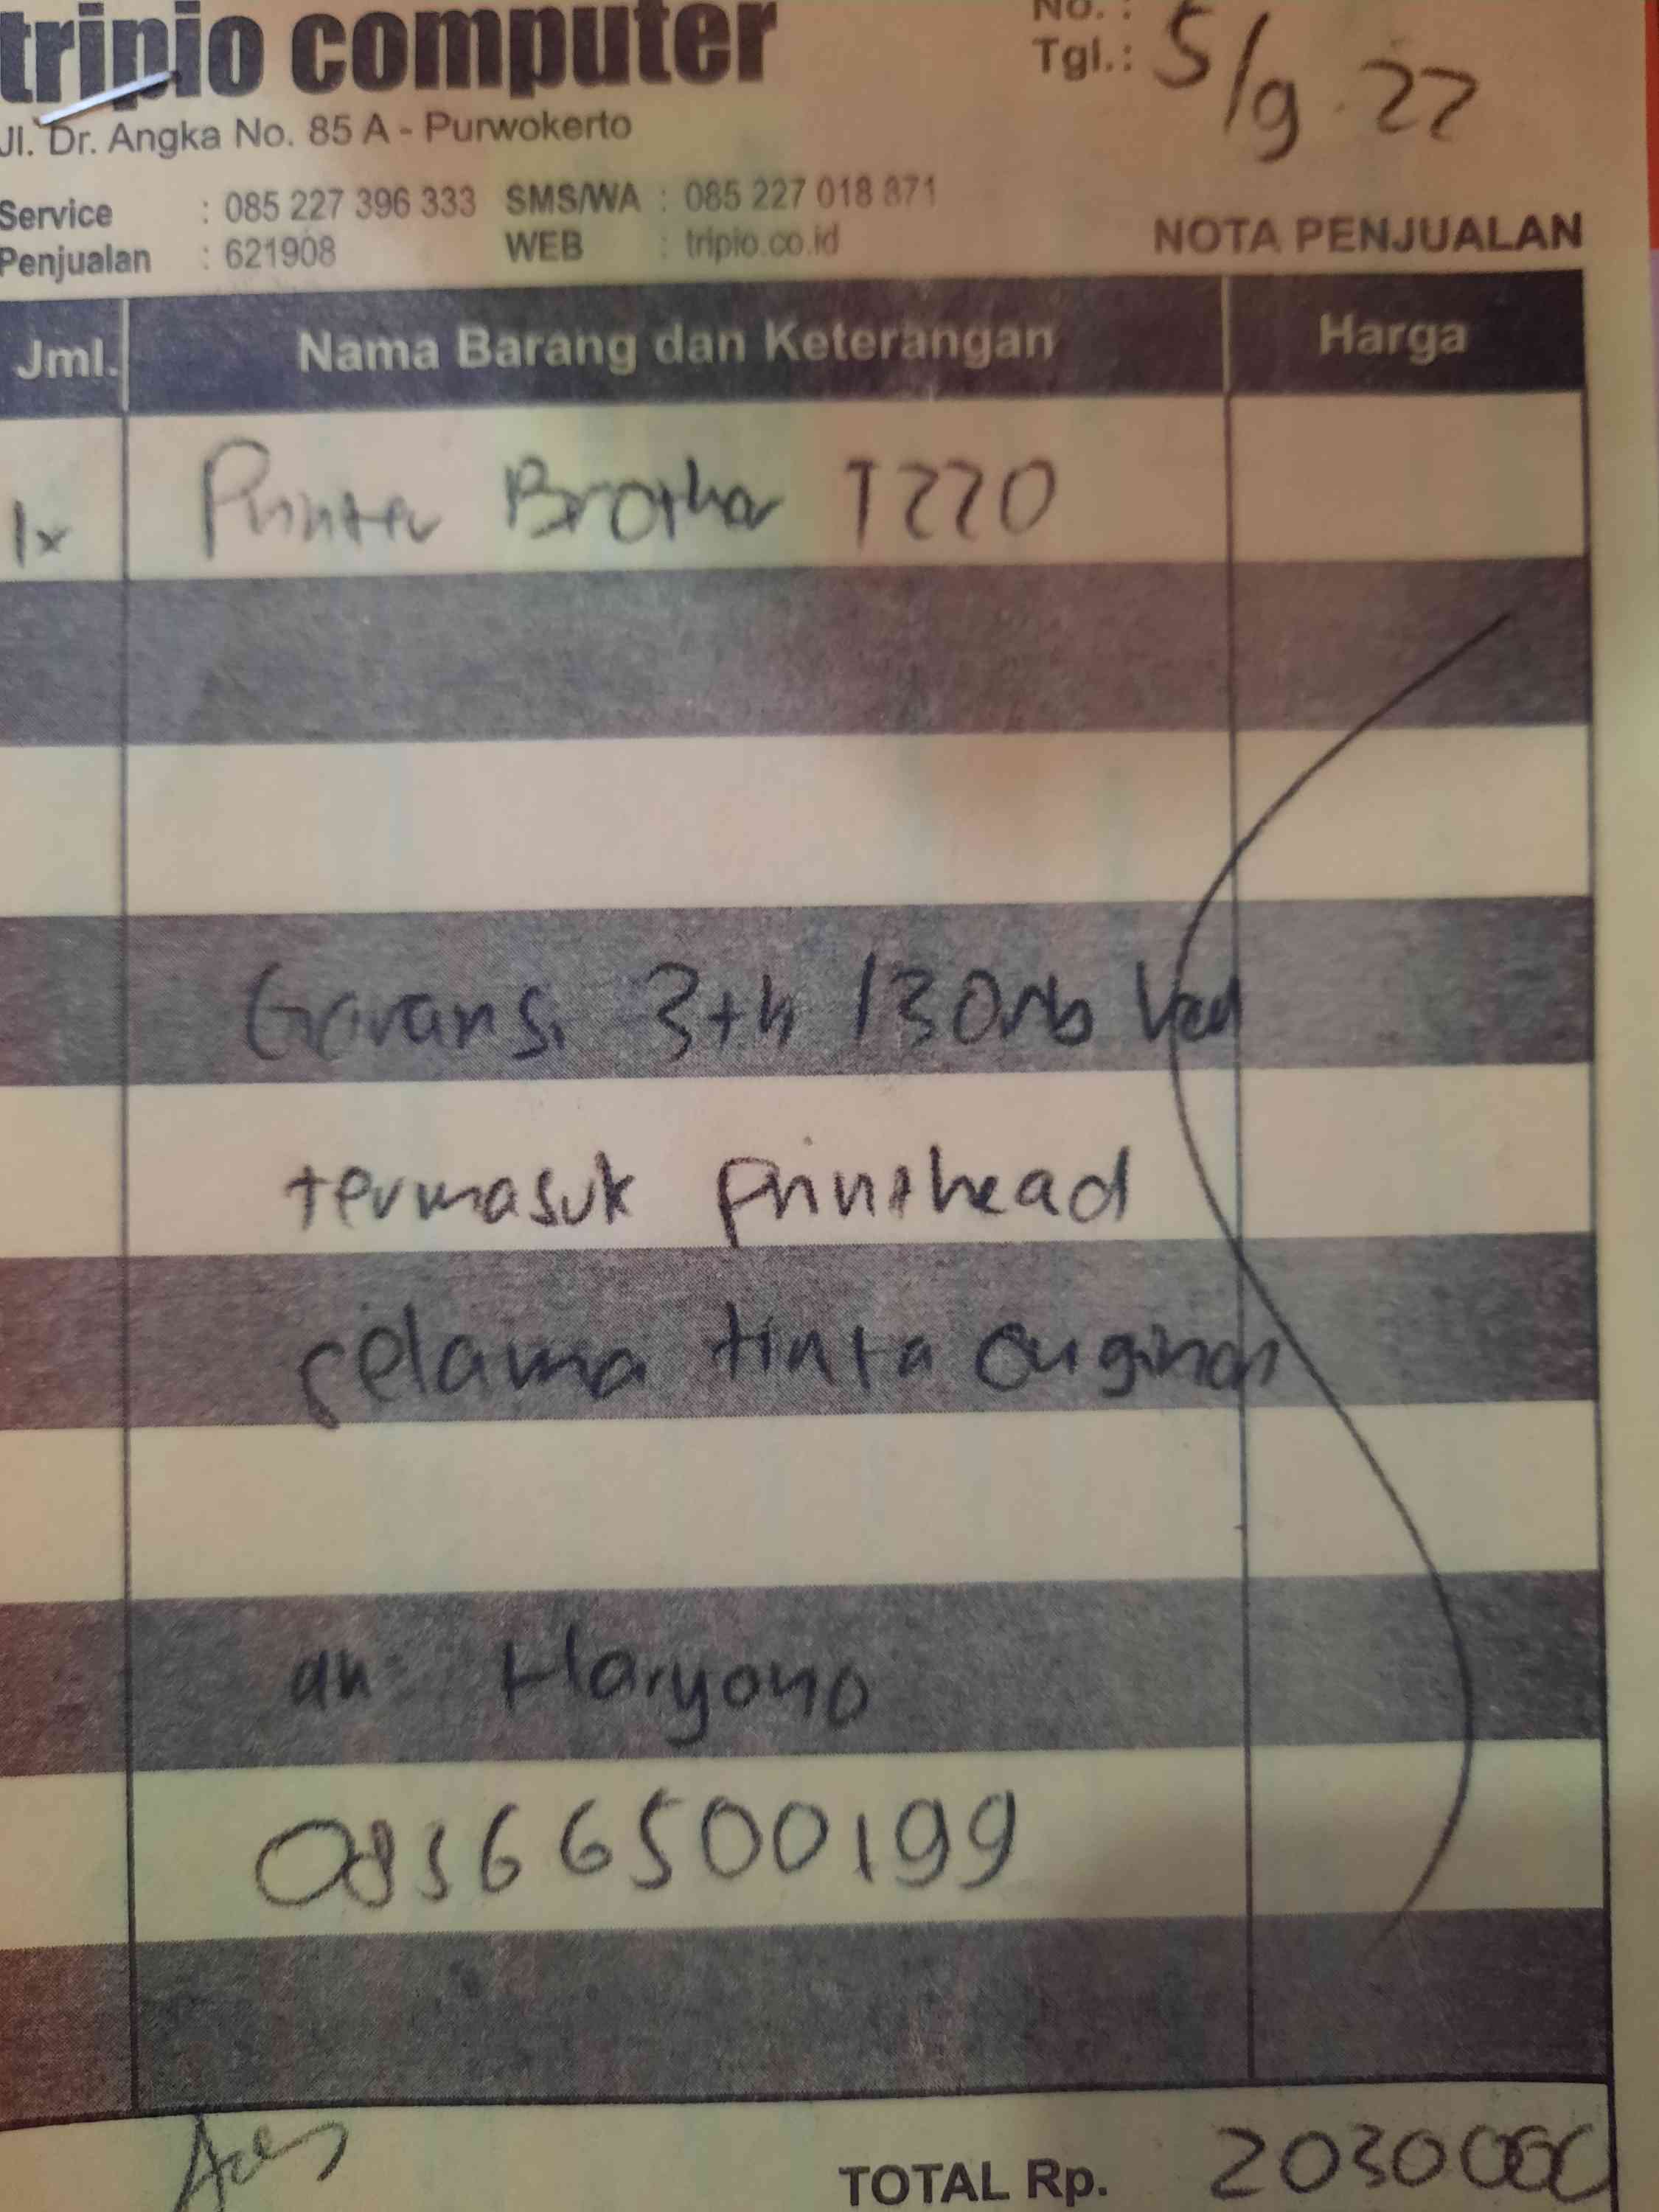 tripio computer
No. :
Tgl.: 5/9 22
Jl. Dr. Angka No. 85 A - Purwokerto
Service : 085 227 396 333 SMS/WA : 085 227 018 871
Penjualan : 621908 WEB : tripio.co.id
NOTA PENJUALAN
Jml. Nama Barang dan Keterangan Harga
1x Printer Brother T220
Garansi 3th /30rb
termasuk printhead
selama tinta original
an: Haryono
08566500199
TOTAL Rp. 2030000